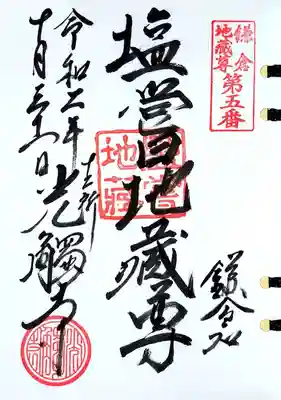 鎌倉
地蔵尊
第五番
鎌倉
塩嘗地蔵尊
塩嘗
地蔵
十二所
光觸寺
令和二年